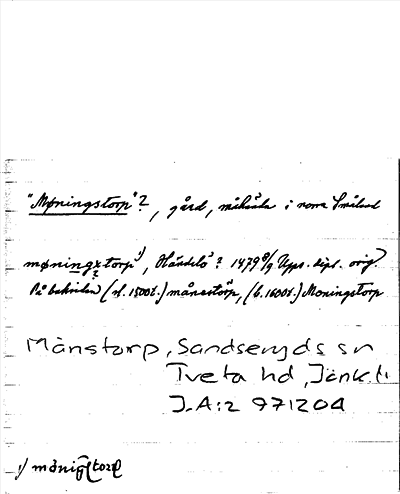 "Møningstorp"?, gård, måhända i norra Småland
møningxtorp¹⁾, Ölandelö? 1479 8/9 Upps. dipl. orig.
På baksidan (sl. 1500t.) månestörp, (b. 1600t.) Moningstorp
Månstorp, Sandseryds sn
Tveta hd, Jönk.l.
J.A:2 971204
1/